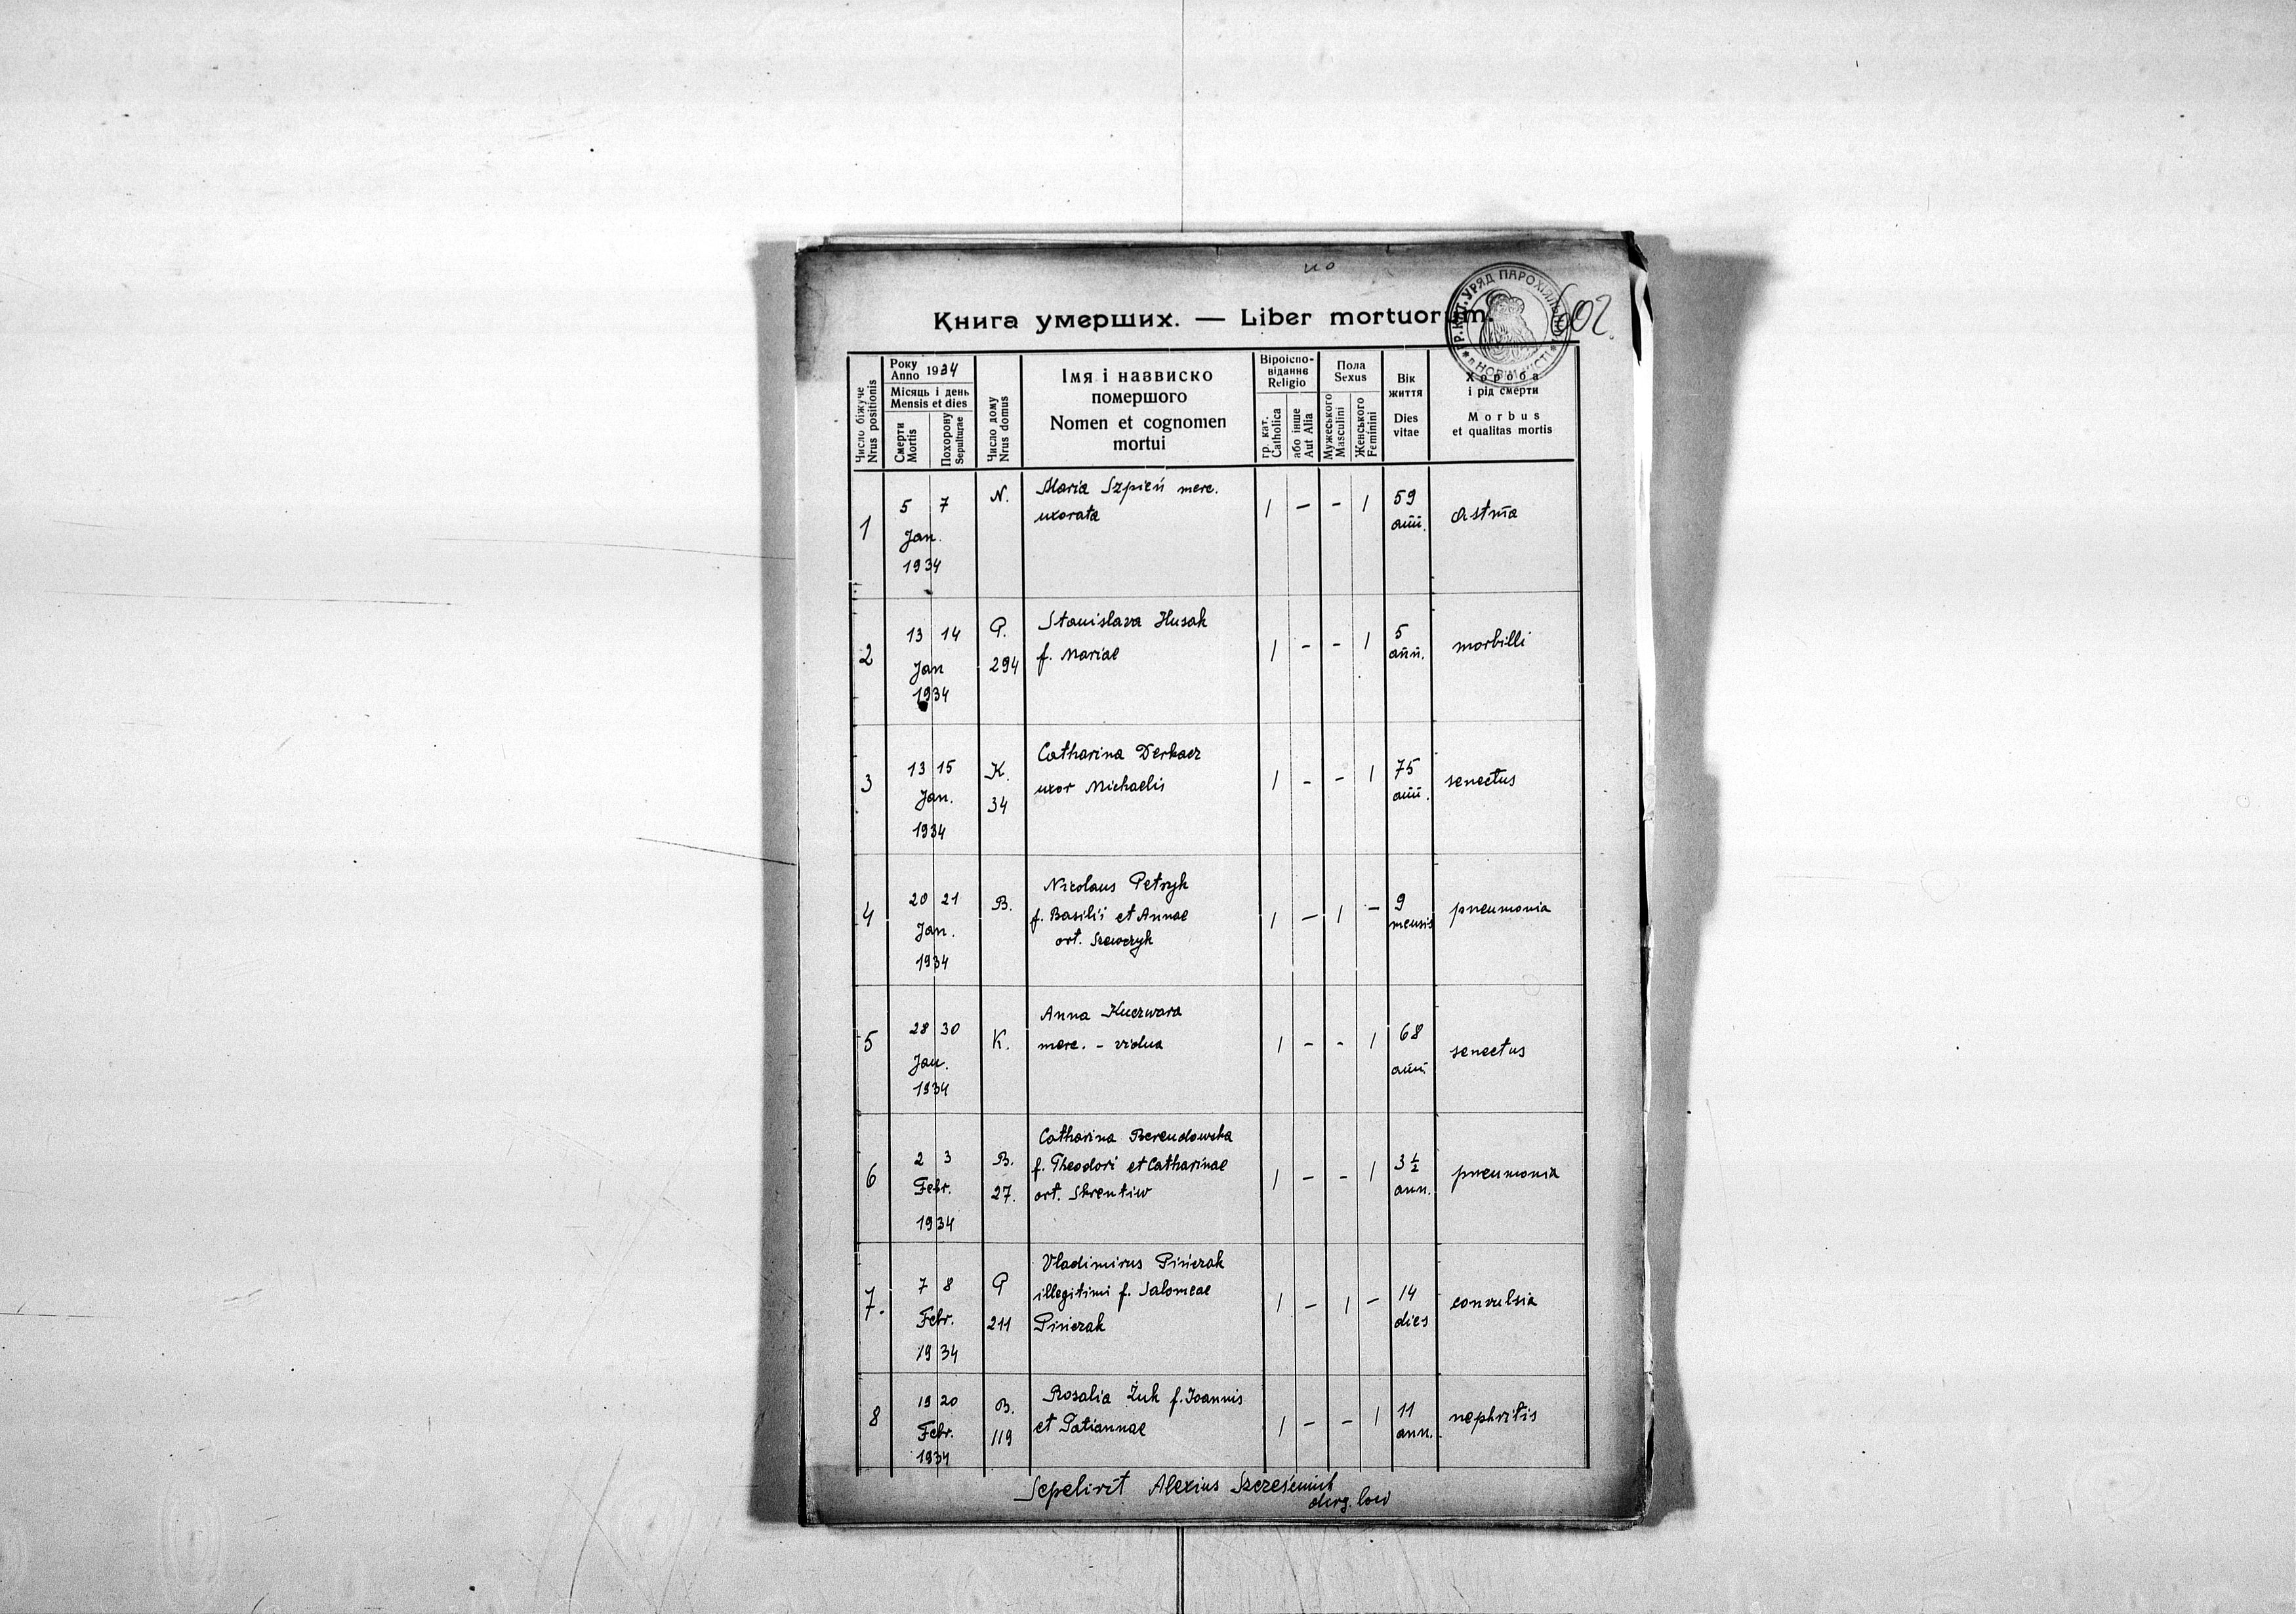 по
Книга умерших. — Liber mortuorum.
602.
ГР. КАТ. УРЯД ПАРОХІЯЛЬНИЙ
Число біжуче
Nrus positionis
Року
Anno 1934
Місяць і день
Mensis et dies
Смерти
Mortis
Похорону
Sepulturae
Число дому
Nrus domus
Імя іназвиско
помершого
Nomen et cognomen
mortui
Віроіспо-
віданнє
Religio
гр. кат.
Catholica
або інше
Aut Alia
Пола
Sexus
Мужеського
Masculini
Женського
Feminini
Вік
життя
Dies
vitae
Хороба
і рід смерти
Morbus
et qualitas mortis
1
5 7
Jan.
1934
N.
Maria Szpień merc.
uxorata
1 — — 1
59
ann.
Astma
2
13 14
Jan
1934
P.
294
Stanislava Husak
f. Mariae
1 — — 1
5
ann.
morbilli
3
13 15
Jan.
1934
K.
34
Catharina Derkacz
uxor Michaelis
1 — — 1
75
ann.
senectus
4
20 21
Jan.
1934
B.
Nicolaus Petryk
f. Basilii et Annae
ort. Szewczyk
1 — 1 —
9
mensis
pneumonia
5
28 30
Jan.
1934
K.
Anna Kuczwara
merc. - vidua
1 — — 1
68
ann.
senectus
6
2 3
Febr.
1934
B.
27.
Catharina Berendowska
f. Theodori et Catharinae
ort. Skrentiw
1 — — 1
3 1/2
ann.
pneumonia
7.
7 8
Febr.
1934
P
211
Vladimirus Pińczak
illegitimi f. Salomeae
Pińczak
1 — 1 —
14
dies
convulsia
8
19 20
Febr.
1934
B.
119
Rosalia Żuk f. Joannis
et Tatiannae
1 — — 1
11
ann.
nephritis
Sepelivit Alexius